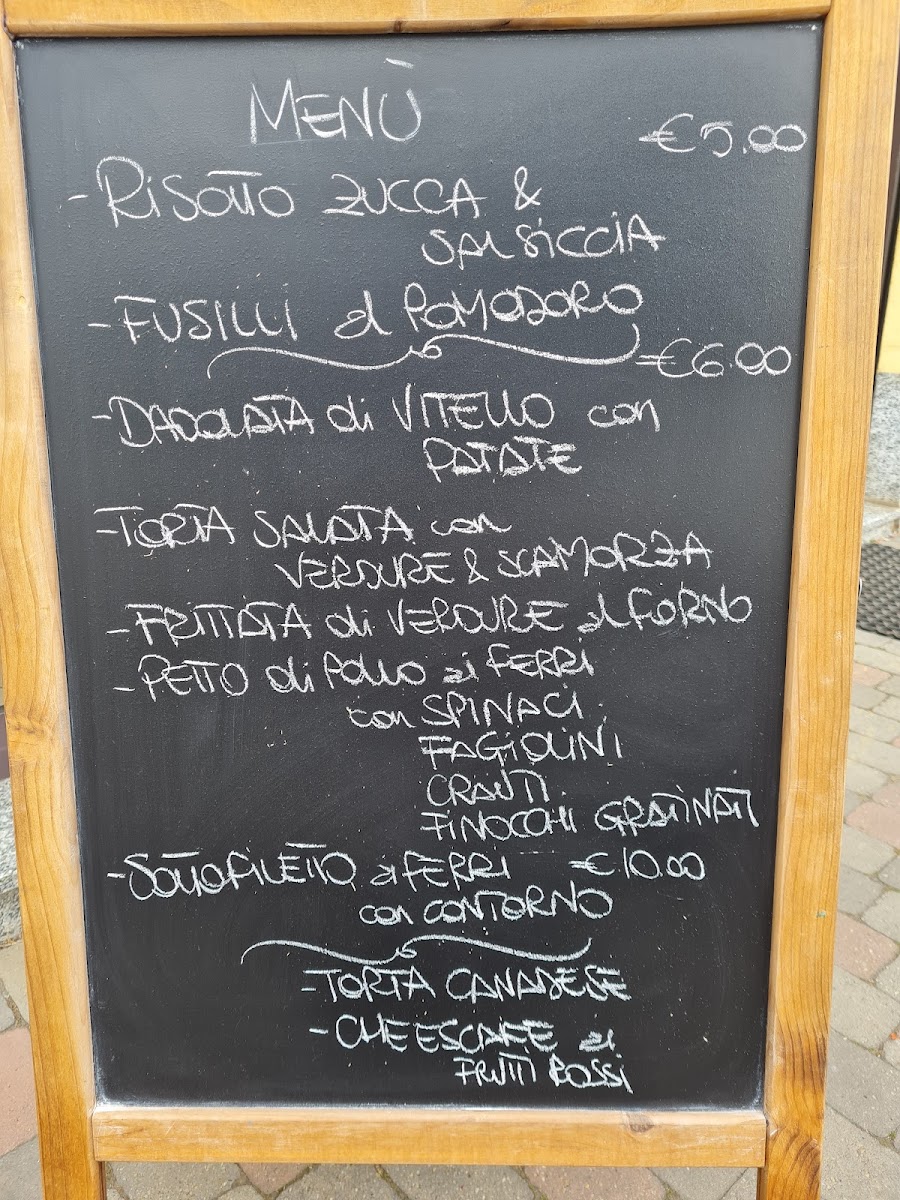 MENÙ
€5.00
- RISOTTO ZUCCA &
SALSICCIA
- FUSILLI al POMODORO
€6.00
- DADOLATA di VITELLO con
PATATE
- TORTA SALATA con
VERDURE & SCAMORZA
- FRITTATA di VERDURE al FORNO
- PETTO di POLLO ai FERRI
con SPINACI
FAGIOLINI
CRAUTI
FINOCCHI GRATINATI
- SOTTOFILETTO ai FERRI €10.00
con CONTORNO
- TORTA CANADESE
- CHEESCAKE ai
FRUTTI ROSSI